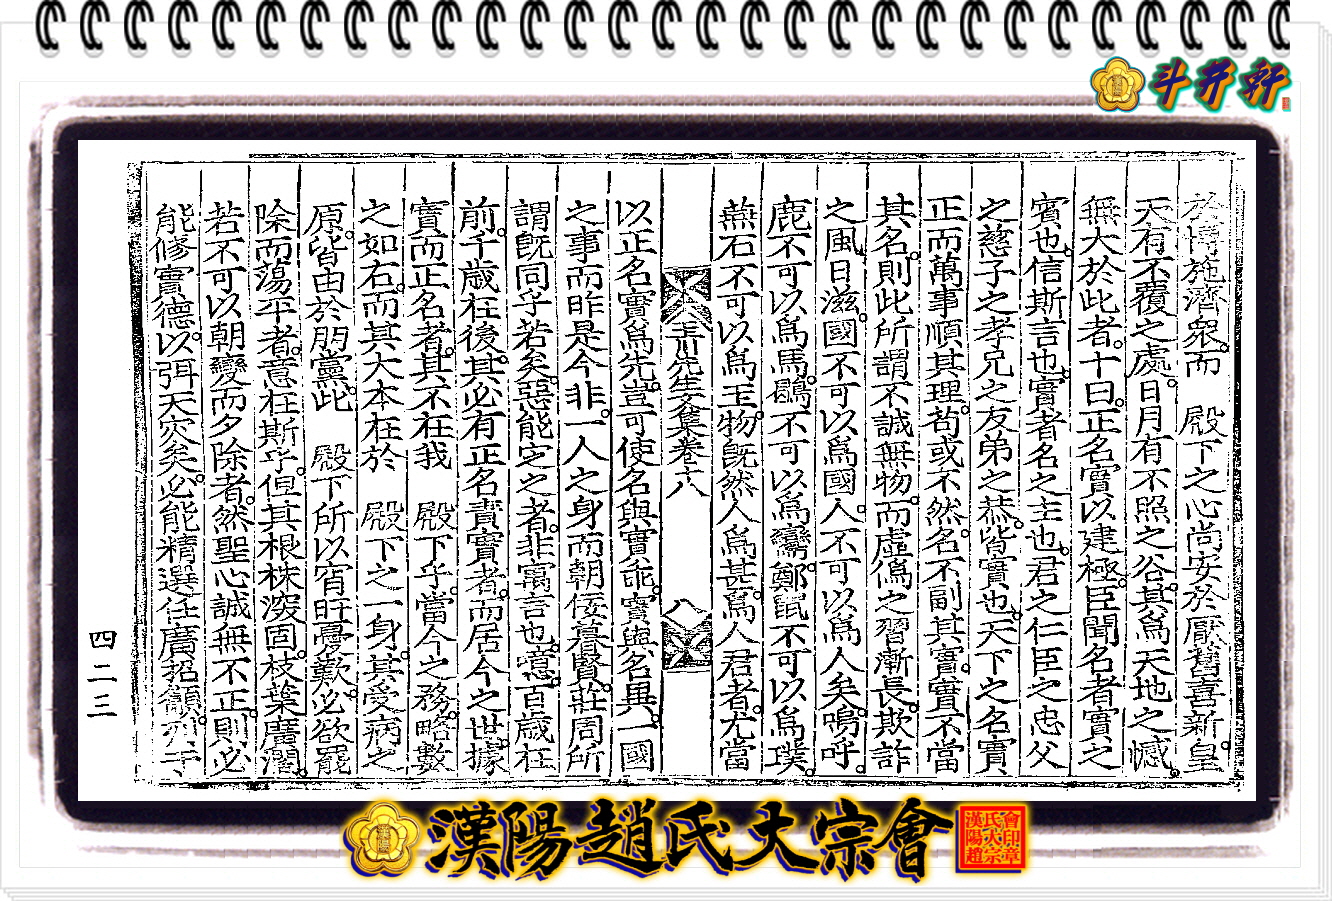 斗井軒
於博施濟衆而 殿下之心尚安於厭舊喜新皇
天有不覆之處日月有不照之谷其爲天地之憾
無大於此者十曰正名實以建極臣聞名者實之
賓也信斯言也實者名之主也君之仁臣之忠父
之慈子之孝兄之友弟之恭皆實也天下之名實
正而萬事順其理苟或不然名不副其實實不當
其名則此所謂不誠無物而虛僞之習漸長欺詐
之風日滋國不可以爲國人不可以爲人矣嗚呼
鹿不可以爲馬鷃不可以爲鸞鄭鼠不可以爲璞
燕石不可以爲玉物旣然人爲甚爲人君者尤當
先生文集卷十八 八
以正名實爲先豈可使名與實乖實與名異一國
之事而昨是今非一人之身而朝佞暮賢莊周所
謂旣同乎若矣惡能定之者非寓言也噫百歲在
前千歲在後其必有正名責實者而居今之世據
實而正名者其不在我 殿下乎當今之務略數
之如右而其大本在於 殿下之一身其受病之
原皆由於朋黨此 殿下所以宵旰憂歎必欲罷
除而蕩平者意在斯乎但其根株深固枝葉廣濶
若不可以朝變而夕除者然聖心誠無不正則必
能修實德以弭天灾矣必能精選任廣招
四二三
漢陽趙氏大宗會
漢陽趙氏大宗會印章